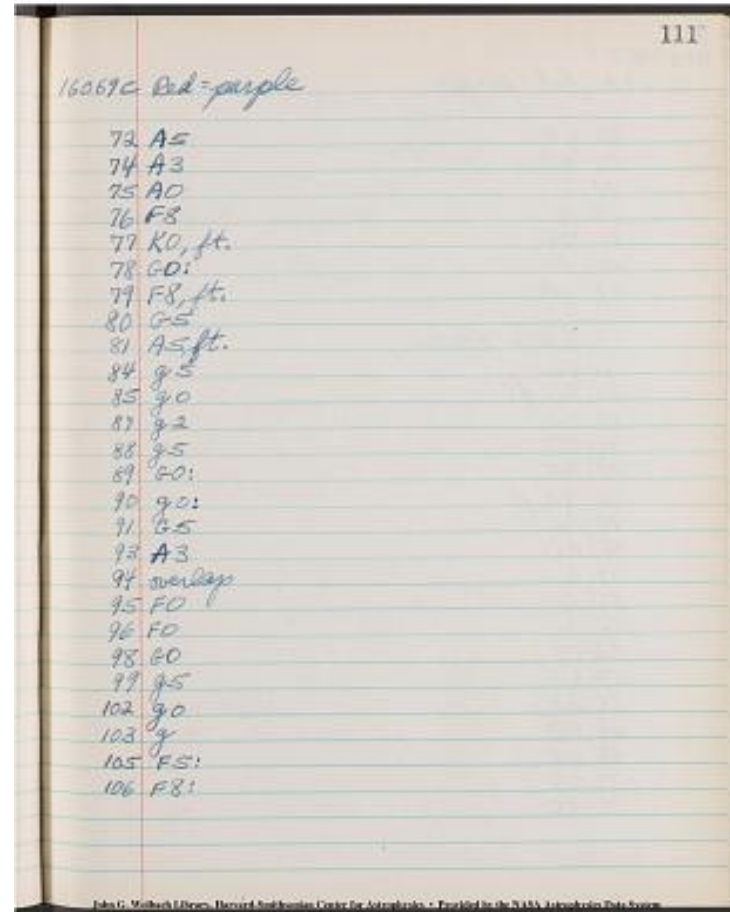 111
16069c Red = purple
72 A5
74 A3
75 A0
76 F8
77 K0, ft.
78 G0:
79 F8, ft.
80 G5
81 A5, ft.
84 g5
85 g0
87 g2
88 g5
89 G0:
90 g0:
91 G5
93 A3
94 overlap
95 F0
96 F0
98 G0
99 g5
102 g0
103 g
105 F5:
106 F8:
John G. Wolbach Library, Harvard-Smithsonian Center for Astrophysics • Provided by the NASA Astrophysics Data System